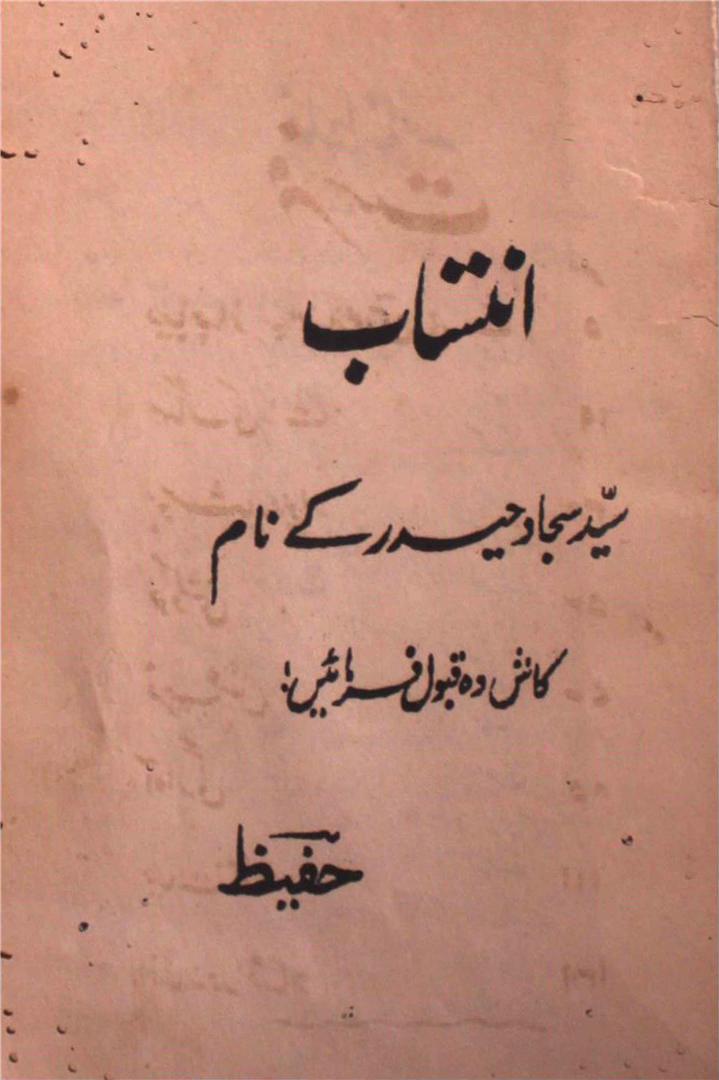 انتساب
سیّد سجاد حیدر کے نام
کاش وہ قبول فرمائیں!
حفیظؔ